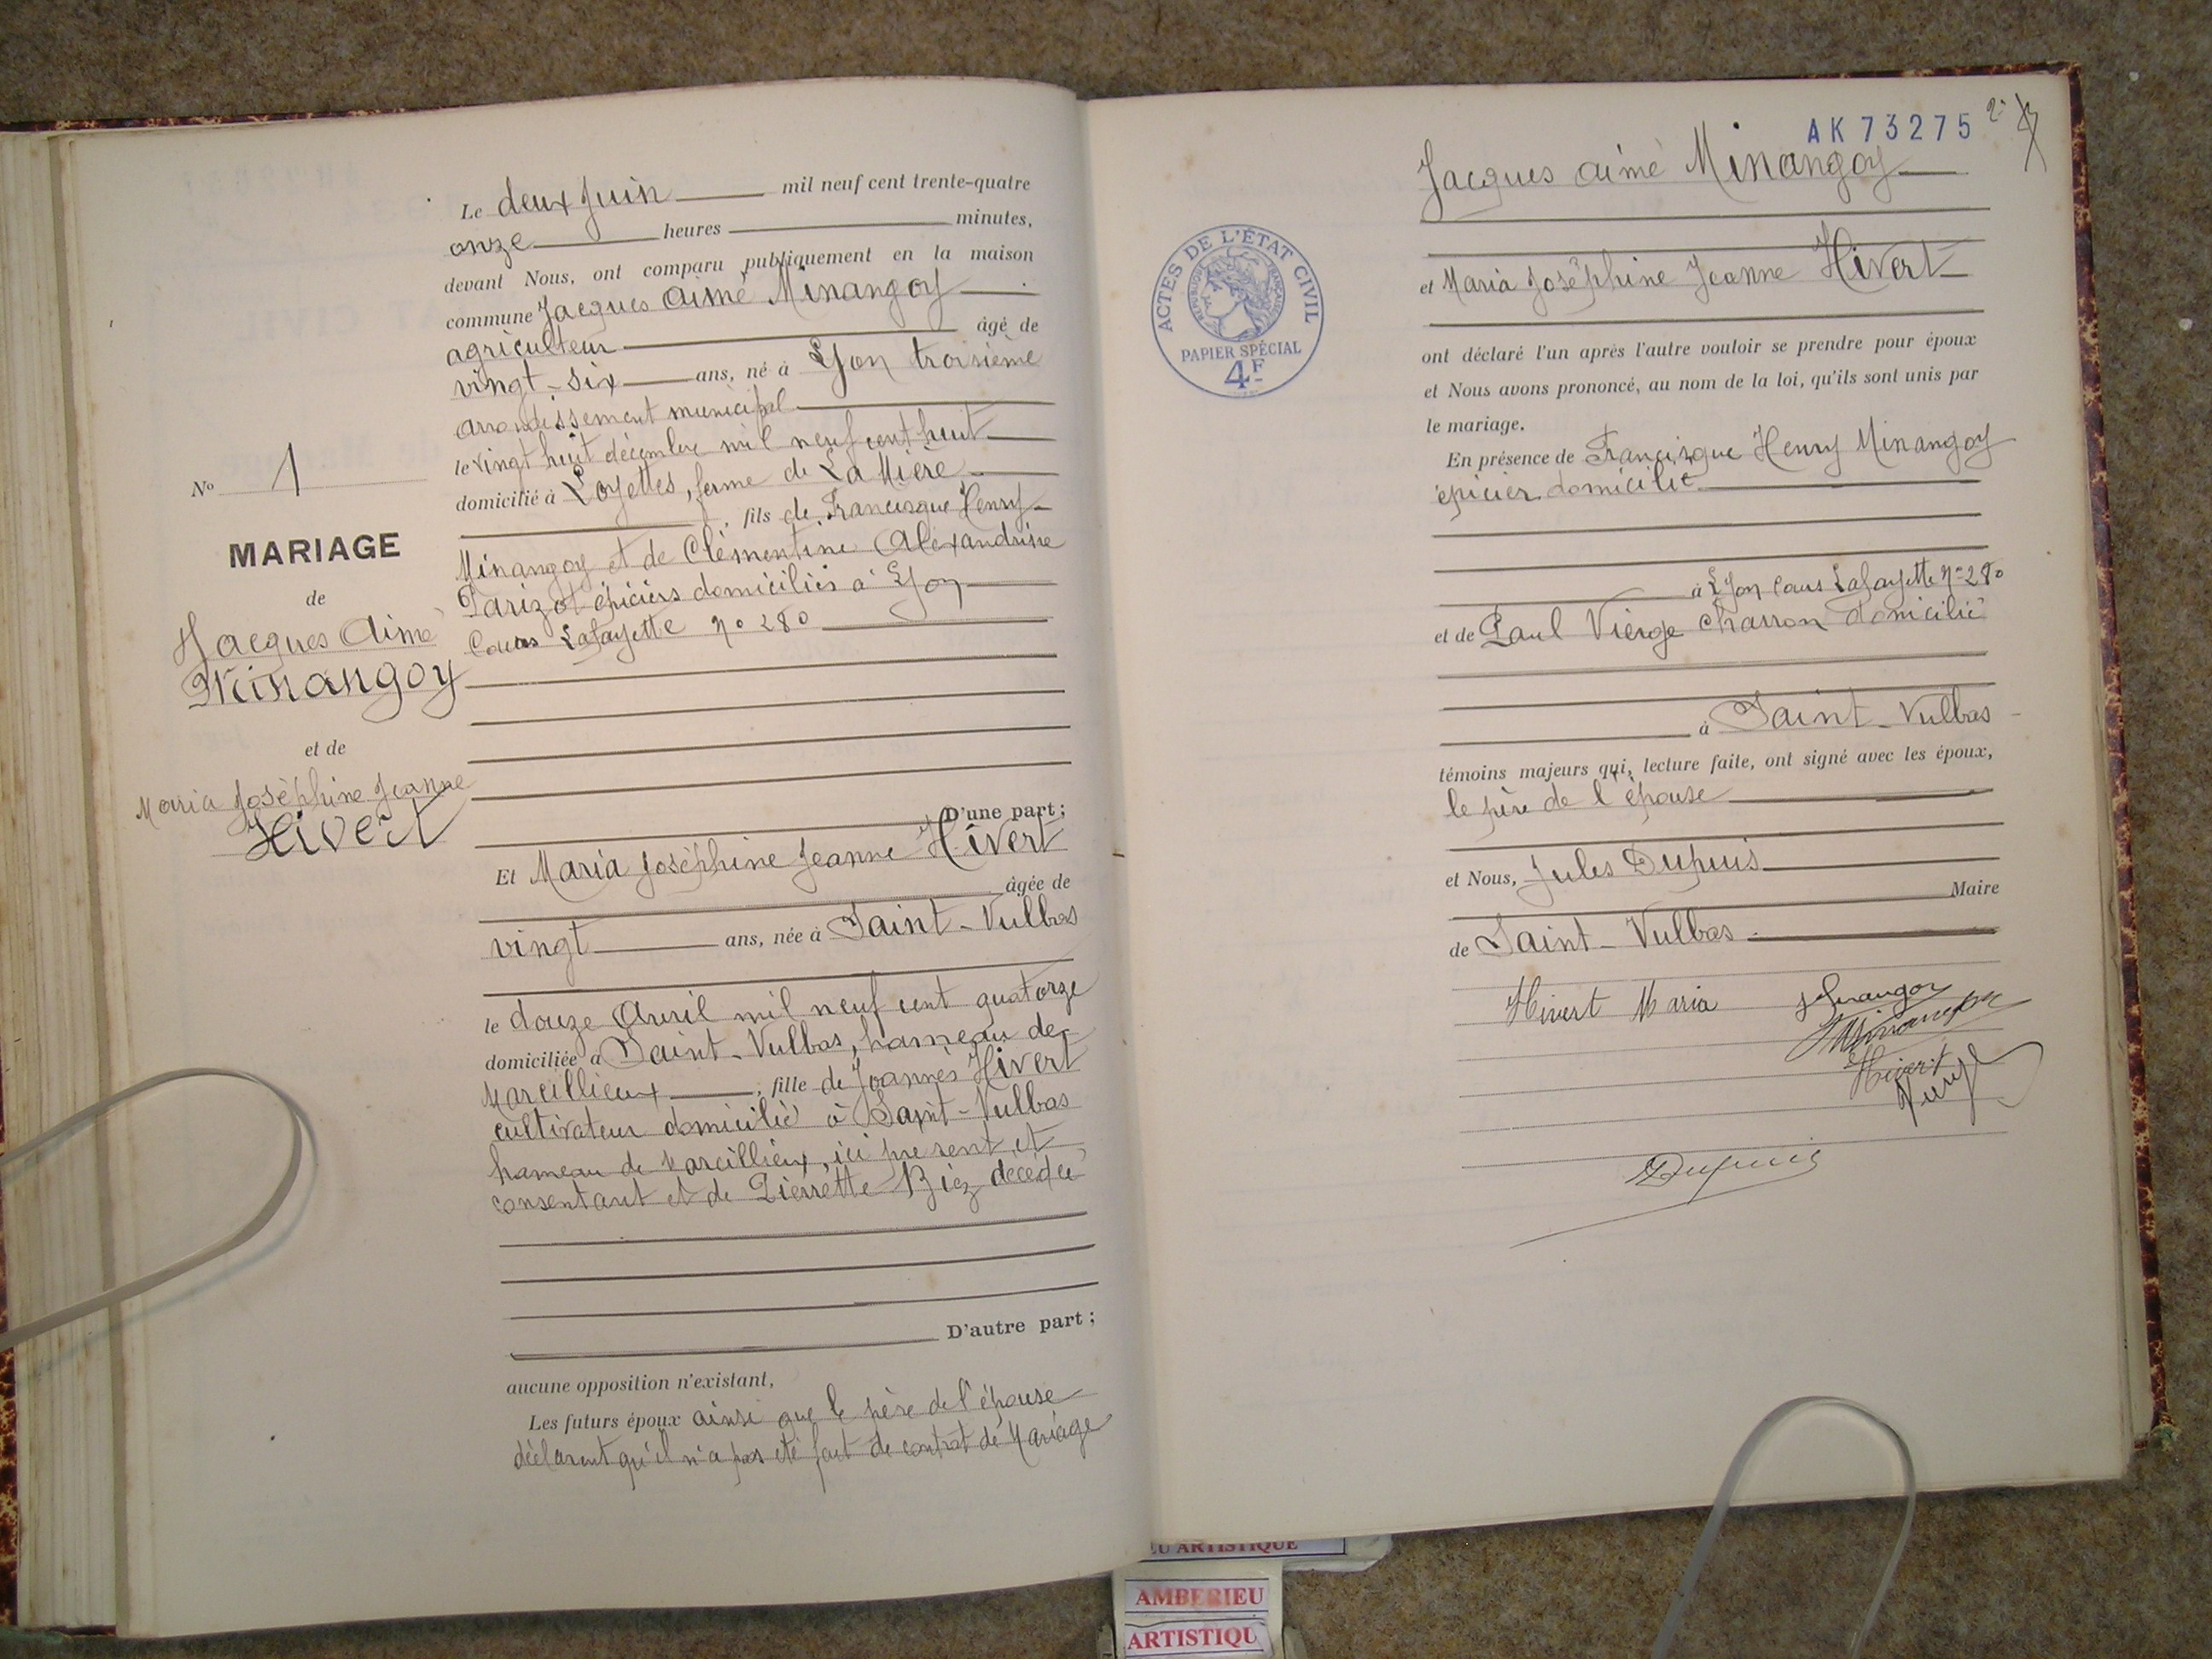 Le deux Juin mil neuf cent trente-quatre
onze heures minutes,
devant Nous, ont comparu publiquement en la maison
commune Jacques Aimé Minangoy
agriculteur âgé de
vingt-six ans, né à Lyon troisième
arrondissement municipal
le vingt huit décembre mil neuf cent huit
domicilié à Loyettes, ferme de La Mière
, fils de Francisque Henry
Minangoy et de Clémentine Alexandrine
Parizot épiciers domiciliés à Lyon
Cours Lafayette n° 280
D'une part;
Et Maria Joséphine Jeanne Hivert
âgée de
vingt ans, née à Saint-Vulbas
le douze Avril mil neuf cent quatorze
domiciliée à Saint-Vulbas, hameau de
Marcillieux, fille de Joannès Hivert
cultivateur domicilié à Saint-Vulbas
hameau de Marcillieux, ici présent et
consentant et de Pierrette Biez decedée
D'autre part;
aucune opposition n'existant,
Les futurs époux ainsi que le père de l'épouse
déclarent qu'il n'a pas été fait de contrat de Mariage
N° 1
MARIAGE
de
Jacques Aimé
Minangoy
et de
Maria Joséphine Jeanne
Hivert
AK 73275
2
Jacques aimé Minangoy
et Maria Joséphine Jeanne Hivert
ont déclaré l'un après l'autre vouloir se prendre pour époux
et Nous avons prononcé, au nom de la loi, qu'ils sont unis par
le mariage.
En présence de Francisque Henry Minangoy
épicier domicilié
à Lyon Cours Lafayette n° 280
et de Paul Vierge charron domicilié
à Saint-Vulbas
témoins majeurs qui, lecture faite, ont signé avec les époux,
le père de l'épouse
et Nous, Jules Dupuis
Maire
de Saint-Vulbas
Hivert Maria
Minangoy
Hivert
Vierge
Dupuis
ACTES DE L'ÉTAT CIVIL
RÉPUBLIQUE FRANÇAISE
PAPIER SPÉCIAL
4F
EU ARTISTIQUE
AMBERIEU
ARTISTIQU